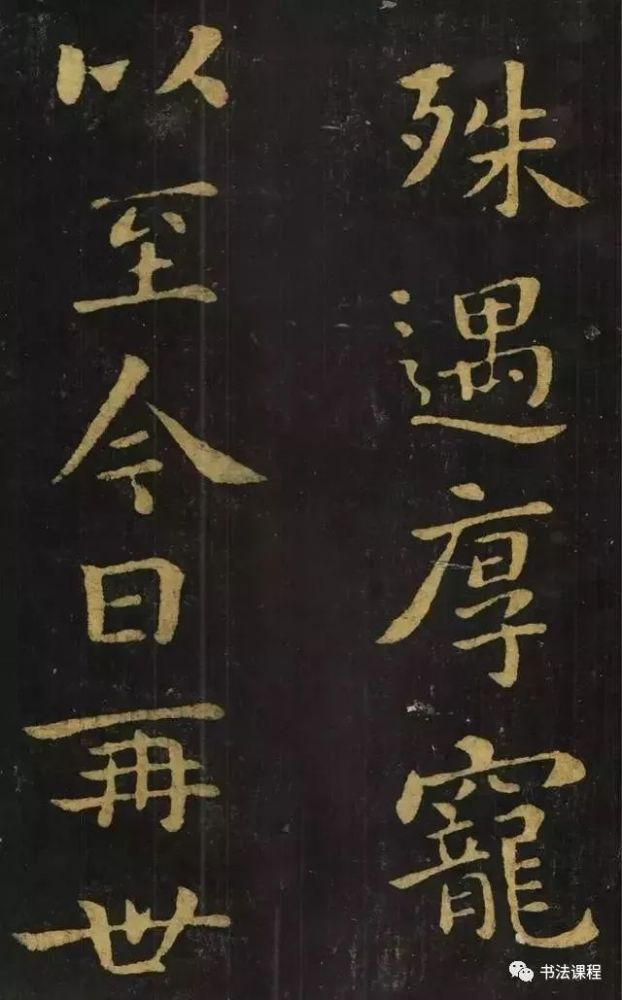 殊遇厚寵
以至今日再世
书法课程